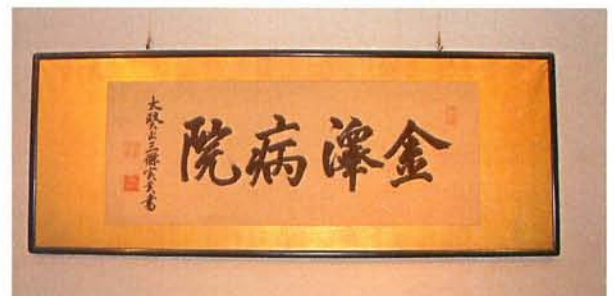 金澤病院
太政大臣三條實美書